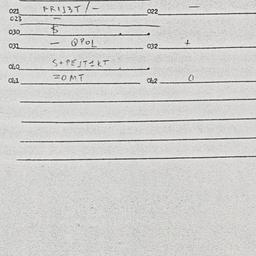 021 FRIJ3T / - 022 -
023 -
030 $ .
031 - QPOL 032 +
040 S+PEJT1KT .
041 =OMT 042 0